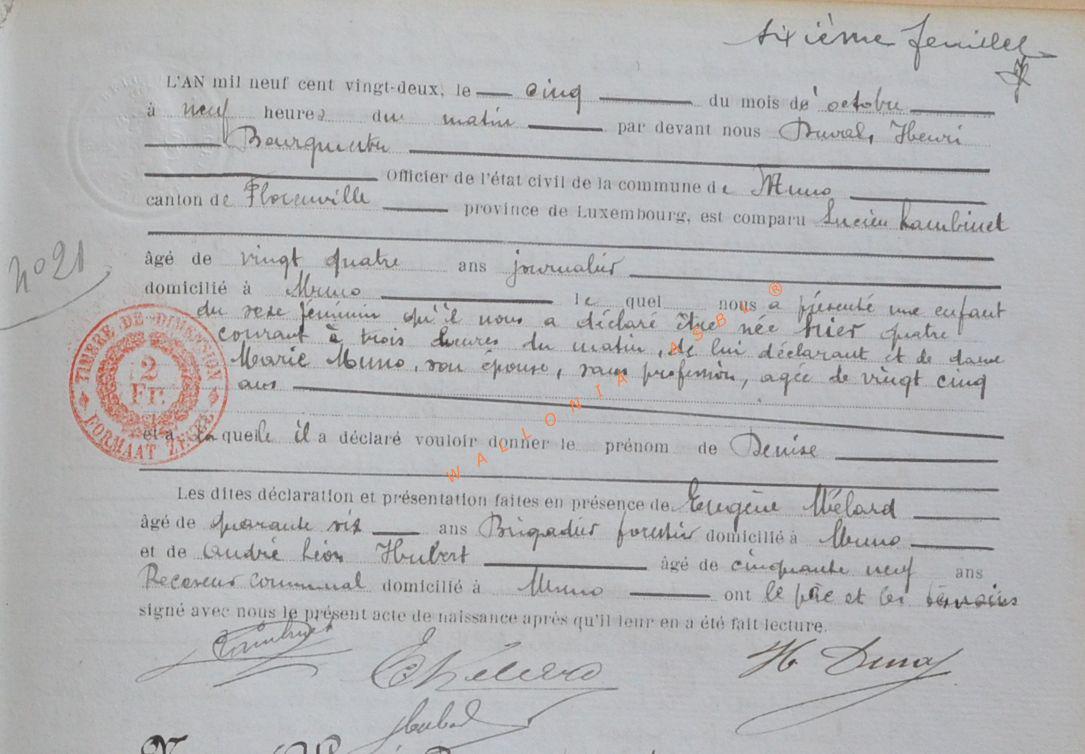 Sixième feuillet
L'AN mil neuf cent vingt-deux, le cinq du mois de octobre
à neuf heures du matin par devant nous Duval, Henri
Bourgmestre
Officier de l'état civil de la commune de Muno
canton de Florenville province de Luxembourg, est comparu Lucien Lambinet
âgé de vingt quatre ans journalier
N° 21
domicilié à Muno lequel nous a présenté une enfant
du sexe féminin qu'il nous a déclaré être née hier quatre
courant à trois heures du matin, de lui déclarant et de dame
Marie Muno, son épouse, sans profession, agée de vingt cinq
ans
TIMBRE DE DIMENSION
2
Fr.
FORMAAT ZEGEL
et à laquelle il a déclaré vouloir donner le prénom de Denise
Les dites déclaration et présentation faites en présence de Eugène Mélard
âgé de quarante six ans Brigadier forestier domicilié à Muno
et de André Léon Hubert âgé de cinquante neuf ans
Receveur communal domicilié à Muno ont le père et les témoins
signé avec nous le présent acte de naissance après qu'il leur en a été fait lecture.
Lambinet
E Mélard
H Duval
Hubert
WALLONIA ASBL ®